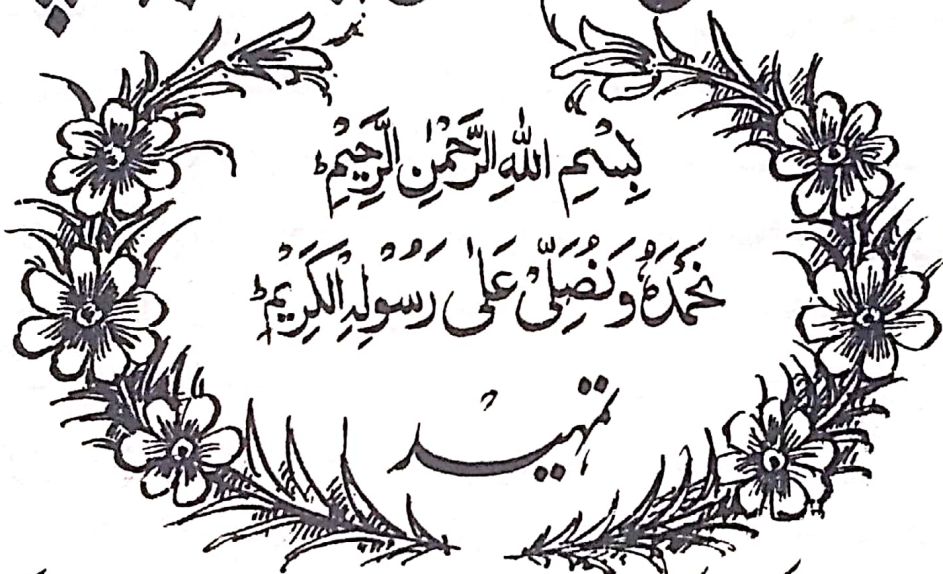 بِسْمِ اللهِ الرَّحْمٰنِ الرَّحِيْمِ ؕ
نَحْمَدُهٗ وَنُصَلِّيْ عَلٰى رَسُوْلِهِ الْكَرِيْمِ ؕ
تمہید